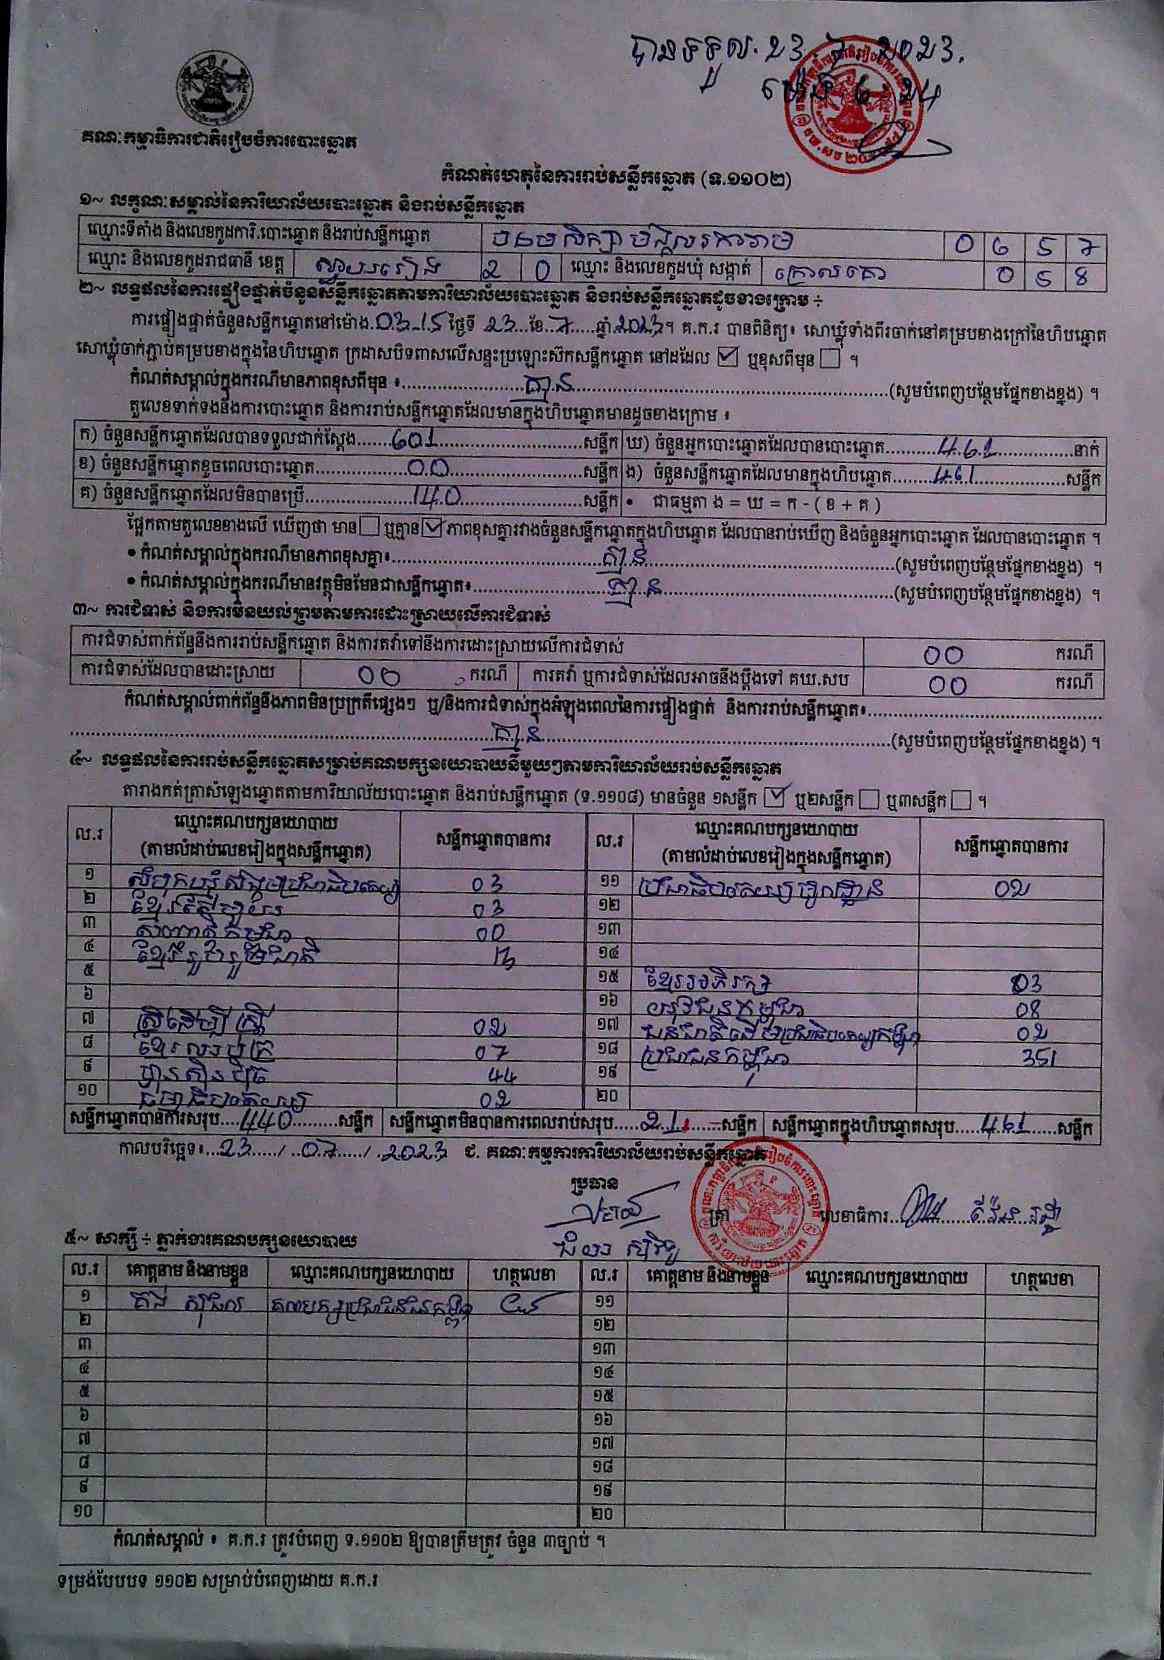 បានទទួល. 23. 7. 2023.
ម៉ោង 6 : 24
គណៈកម្មាធិការជាតិរៀបចំការបោះឆ្នោត
កំណត់ហេតុនៃការរាប់សន្លឹកឆ្នោត (ទ.១១០២)
១~ លក្ខណៈសម្គាល់នៃការិយាល័យបោះឆ្នោត និងរាប់សន្លឹកឆ្នោត
ឈ្មោះទីតាំង និងលេខកូដការិ.បោះឆ្នោត និងរាប់សន្លឹកឆ្នោត បឋមសិក្សា 0 6 5 7
ឈ្មោះ និងលេខកូដរាជធានី ខេត្ត ស្វាយរៀង 2 0 ឈ្មោះ និងលេខកូដឃុំ សង្កាត់ ក្រោលគោ 0 5 8
២~ លទ្ធផលនៃការផ្ទៀងផ្ទាត់ចំនួនសន្លឹកឆ្នោតតាមការិយាល័យបោះឆ្នោត និងរាប់សន្លឹកឆ្នោតដូចខាងក្រោម ÷
ការផ្ទៀងផ្ទាត់ចំនួនសន្លឹកឆ្នោតនៅម៉ោង.03.15 ថ្ងៃទី 23...ខែ...7.....ឆ្នាំ.2023។ គ.ក.រ បានពិនិត្យ៖ សោឃ្លុំទាំងពីរចាក់នៅគម្របខាងក្រៅនៃហិបឆ្នោត
សោឃ្លុំចាក់ភ្ជាប់គម្របខាងក្នុងនៃហិបឆ្នោត ក្រដាសបិទពាសលើសន្ទះប្រឡោះស៊កសន្លឹកឆ្នោត នៅដដែល ☑ ឬខុសពីមុន ☐ ។
កំណត់សម្គាល់ក្នុងករណីមានភាពខុសពីមុន ៖...គ្មាន...(សូមបំពេញបន្ថែមផ្នែកខាងខ្នង) ។
តួលេខទាក់ទងនឹងការបោះឆ្នោត និងការរាប់សន្លឹកឆ្នោតដែលមានក្នុងហិបឆ្នោតមានដូចខាងក្រោម ៖
ក) ចំនួនសន្លឹកឆ្នោតដែលបានទទួលជាក់ស្តែង......601......សន្លឹក ឃ) ចំនួនអ្នកបោះឆ្នោតដែលបានបោះឆ្នោត......461......នាក់
ខ) ចំនួនសន្លឹកឆ្នោតខូចពេលបោះឆ្នោត......00......សន្លឹក ង) ចំនួនសន្លឹកឆ្នោតដែលមានក្នុងហិបឆ្នោត......461......សន្លឹក
គ) ចំនួនសន្លឹកឆ្នោតដែលមិនបានប្រើ......140......សន្លឹក • ជាធម្មតា ង = ឃ = ក - ( ខ + គ )
ផ្អែកតាមតួលេខខាងលើ ឃើញថា មាន ☐ ឬគ្មាន ☑ ភាពខុសគ្នារវាងចំនួនសន្លឹកឆ្នោតក្នុងហិបឆ្នោត ដែលបានរាប់ឃើញ និងចំនួនអ្នកបោះឆ្នោត ដែលបានបោះឆ្នោត ។
• កំណត់សម្គាល់ក្នុងករណីមានភាពខុសគ្នា៖...គ្មាន...(សូមបំពេញបន្ថែមផ្នែកខាងខ្នង) ។
• កំណត់សម្គាល់ក្នុងករណីមានវត្ថុមិនមែនជាសន្លឹកឆ្នោត៖...គ្មាន...(សូមបំពេញបន្ថែមផ្នែកខាងខ្នង) ។
៣~ ការជំទាស់ និងការមិនយល់ព្រមតាមការដោះស្រាយលើការជំទាស់
ការជំទាស់ពាក់ព័ន្ធនឹងការរាប់សន្លឹកឆ្នោត និងការតវ៉ាទៅនឹងការដោះស្រាយលើការជំទាស់ 00 ករណី
ការជំទាស់ដែលបានដោះស្រាយ 00 ករណី ការតវ៉ា ឬការជំទាស់ដែលអាចនឹងប្តឹងទៅ គឃ.សប 00 ករណី
កំណត់សម្គាល់ពាក់ព័ន្ធនឹងភាពមិនប្រក្រតីផ្សេងៗ ឬ/និងការជំទាស់ក្នុងអំឡុងពេលនៃការផ្ទៀងផ្ទាត់ និងការរាប់សន្លឹកឆ្នោត៖......
......គ្មាន......(សូមបំពេញបន្ថែមផ្នែកខាងខ្នង) ។
៤~ លទ្ធផលនៃការរាប់សន្លឹកឆ្នោតសម្រាប់គណបក្សនយោបាយនីមួយៗតាមការិយាល័យរាប់សន្លឹកឆ្នោត
តារាងកត់ត្រាសំឡេងឆ្នោតតាមការិយាល័យបោះឆ្នោត និងរាប់សន្លឹកឆ្នោត (ទ.១១០៨) មានចំនួន ១សន្លឹក ☑ ឬ២សន្លឹក ☐ ឬ៣សន្លឹក ☐ ។
ល.រ ឈ្មោះគណបក្សនយោបាយ (តាមលំដាប់លេខរៀងក្នុងសន្លឹកឆ្នោត) សន្លឹកឆ្នោតបានការ ល.រ ឈ្មោះគណបក្សនយោបាយ (តាមលំដាប់លេខរៀងក្នុងសន្លឹកឆ្នោត) សន្លឹកឆ្នោតបានការ
១ សំបុកឃ្មុំសង្គមប្រជាធិបតេយ្យ 03 ១១ ប្រជាធិបតេយ្យមូលដ្ឋាន 02
២ ខ្មែរ 03 ១២
៣ សញ្ជាតិកម្ពុជា 00 ១៣
៤ ខ្មែររួបរួមជាតិ 13 ១៤
៥ ១៥ ខ្មែរអភិរក្ស 03
៦ ១៦ យុវជនកម្ពុជា 08
៧ ស្រ្តីដើម្បីស្រ្តី 02 ១៧ ជនជាតិដើមប្រជាធិបតេយ្យកម្ពុជា 02
៨ ខ្មែរ 07 ១៨ ប្រជាជនកម្ពុជា 351
៩ ហ្វ៊ុនស៊ិនប៉ិច 44 ១៩
១០ ធម្មាធិបតេយ្យ 02 ២០
សន្លឹកឆ្នោតបានការសរុប....440......សន្លឹក សន្លឹកឆ្នោតមិនបានការពេលរាប់សរុប......21......សន្លឹក សន្លឹកឆ្នោតក្នុងហិបឆ្នោតសរុប.....461.....សន្លឹក
កាលបរិច្ឆេទ៖...23..../..07..../..2023 ជ. គណៈកម្មការការិយាល័យរាប់សន្លឹកឆ្នោត
ប្រធាន
ត្រា លេខាធិការ
៥~ សាក្សី ÷ ភ្នាក់ងារគណបក្សនយោបាយ
ល.រ គោត្តនាម និងនាមខ្លួន ឈ្មោះគណបក្សនយោបាយ ហត្ថលេខា ល.រ គោត្តនាម និងនាមខ្លួន ឈ្មោះគណបក្សនយោបាយ ហត្ថលេខា
១ គណបក្សប្រជាជនកម្ពុជា ១១
២ ១២
៣ ១៣
៤ ១៤
៥ ១៥
៦ ១៦
៧ ១៧
៨ ១៨
៩ ១៩
១០ ២០
កំណត់សម្គាល់ ៖ គ.ក.រ ត្រូវបំពេញ ទ.១១០២ ឱ្យបានត្រឹមត្រូវ ចំនួន ៣ច្បាប់ ។
ទម្រង់បែបបទ ១១០២ សម្រាប់បំពេញដោយ គ.ក.រ